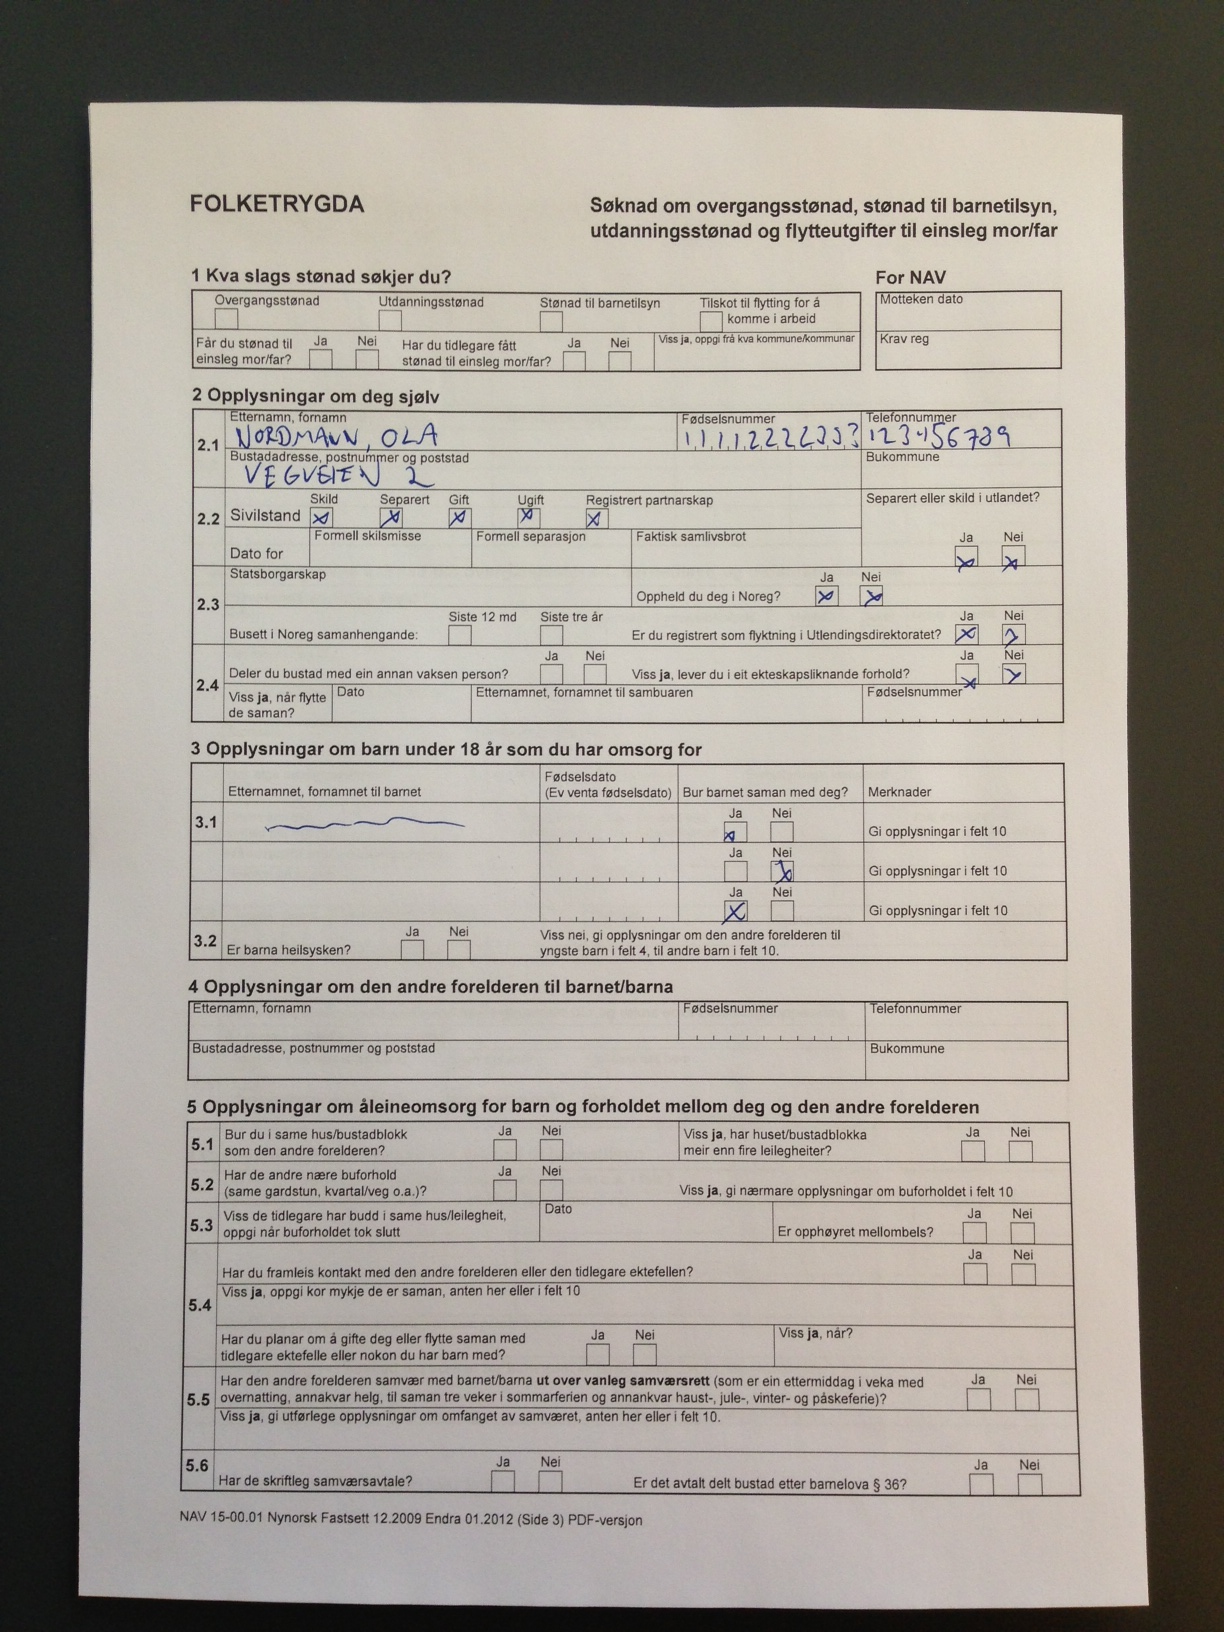 FOLKETRYGDA
Søknad om overgangsstønad, stønad til barnetilsyn,
utdanningsstønad og flytteutgifter til einsleg mor/far
1 Kva slags stønad søkjer du?
For NAV
Overgangsstønad Utdanningsstønad Stønad til barnetilsyn Tilskot til flytting for å
komme i arbeid
Motteken dato
Får du stønad til
einsleg mor/far?
Ja Nei
Har du tidlegare fått
stønad til einsleg mor/far?
Ja Nei
Viss ja, oppgi frå kva kommune/kommunar
Krav reg
2 Opplysningar om deg sjølv
2.1
Etternamn, fornamn
NORDMANN, OLA
Fødselsnummer
Telefonnummer
123456789
Bustadadresse, postnummer og poststad
VEGVEIEN 2
Bukommune
2.2
Sivilstand
Skild Separert Gift Ugift Registrert partnarskap
Separert eller skild i utlandet?
Ja Nei
Dato for
Formell skilsmisse
Formell separasjon
Faktisk samlivsbrot
2.3
Statsborgarskap
Oppheld du deg i Noreg?
Ja Nei
Busett i Noreg samanhengande:
Siste 12 md Siste tre år
Er du registrert som flyktning i Utlendingsdirektoratet?
Ja Nei
2.4
Deler du bustad med ein annan vaksen person?
Ja Nei
Viss ja, lever du i eit ekteskapsliknande forhold?
Ja Nei
Viss ja, når flytte
de saman?
Dato
Etternamnet, fornamnet til sambuaren
Fødselsnummer
3 Opplysningar om barn under 18 år som du har omsorg for
Etternamnet, fornamnet til barnet
Fødselsdato
(Ev venta fødselsdato)
Bur barnet saman med deg?
Merknader
3.1
Ja Nei
Gi opplysningar i felt 10
Ja Nei
Gi opplysningar i felt 10
Ja Nei
Gi opplysningar i felt 10
3.2
Er barna heilsysken?
Ja Nei
Viss nei, gi opplysningar om den andre forelderen til
yngste barn i felt 4, til andre barn i felt 10.
4 Opplysningar om den andre forelderen til barnet/barna
Etternamn, fornamn
Fødselsnummer
Telefonnummer
Bustadadresse, postnummer og poststad
Bukommune
5 Opplysningar om åleineomsorg for barn og forholdet mellom deg og den andre forelderen
5.1
Bur du i same hus/bustadblokk
som den andre forelderen?
Ja Nei
Viss ja, har huset/bustadblokka
meir enn fire leilegheiter?
Ja Nei
5.2
Har de andre nære buforhold
(same gardstun, kvartal/veg o.a.)?
Ja Nei
Viss ja, gi nærmare opplysningar om buforholdet i felt 10
5.3
Viss de tidlegare har budd i same hus/leilegheit,
oppgi når buforholdet tok slutt
Dato
Er opphøyret mellombels?
Ja Nei
5.4
Har du framleis kontakt med den andre forelderen eller den tidlegare ektefellen?
Ja Nei
Viss ja, oppgi kor mykje de er saman, anten her eller i felt 10
Har du planar om å gifte deg eller flytte saman med
tidlegare ektefelle eller nokon du har barn med?
Ja Nei
Viss ja, når?
5.5
Har den andre forelderen samvær med barnet/barna ut over vanleg samværsrett (som er ein ettermiddag i veka med
overnatting, annakvar helg, til saman tre veker i sommarferien og annankvar haust-, jule-, vinter- og påskeferie)?
Ja Nei
Viss ja, gi utførlege opplysningar om omfanget av samværet, anten her eller i felt 10.
5.6
Har de skriftleg samværsavtale?
Ja Nei
Er det avtalt delt bustad etter barnelova § 36?
Ja Nei
NAV 15-00.01 Nynorsk Fastsett 12.2009 Endra 01.2012 (Side 3) PDF-versjon